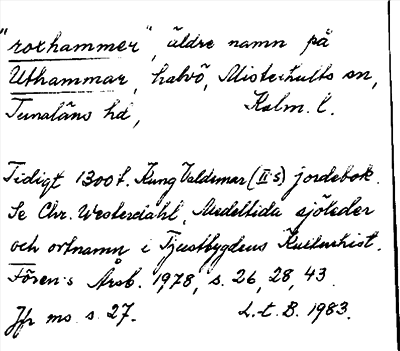 "roxhammer", äldre namn på
Uthammar, halvö, Misterhults sn,
Tunaläns hd, Kalm. l.
Tidigt 1300t. Kung Valdemar (II:s) jordebok.
Se Chr. Westerdahl, Medeltida sjöleder
och ortnamn i Tjustbygdens Kulturhist.
Fören:s Årsb. 1978, s. 26, 28, 43.
Jfr ms s. 27. L.t. B. 1983.